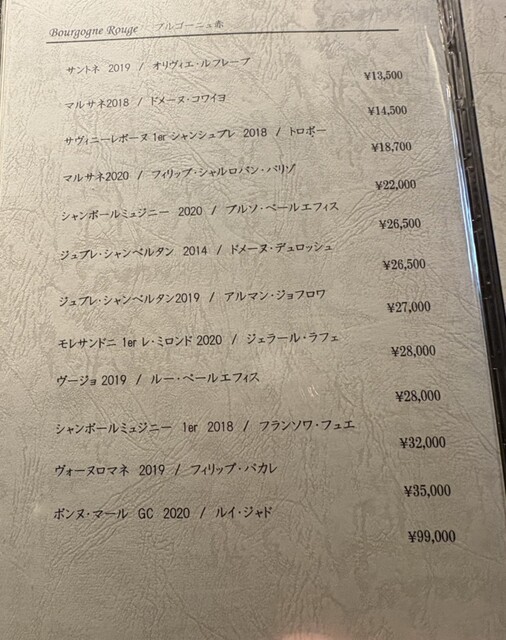 Bourgogne Rouge ブルゴーニュ赤
サントネ 2019 / オリヴィエ・ルフレーブ
¥13,500
マルサネ2018 / ドメーヌ・コワイヨ
¥14,500
サヴィニーレボーヌ 1er シャンシュブレ 2018 / トロボー
¥18,700
マルサネ2020 / フィリップ・シャルロパン・パリゾ
¥22,000
シャンボールミュジニー 2020 / ブルソ・ペールエフィス
¥26,500
ジュブレ・シャンベルタン 2014 / ドメーヌ・デュロッシュ
¥26,500
ジュブレ・シャンベルタン2019 / アルマン・ジョフロワ
¥27,000
モレサンドニ 1er レ・ミロンド 2020 / ジェラール・ラフェ
¥28,000
ヴージョ 2019 / ルー・ペールエフィス
¥28,000
シャンボールミュジニー 1er 2018 / フランソワ・フュエ
¥32,000
ヴォーヌロマネ 2019 / フィリップ・パカレ
¥35,000
ボンヌ・マール GC 2020 / ルイ・ジャド
¥99,000